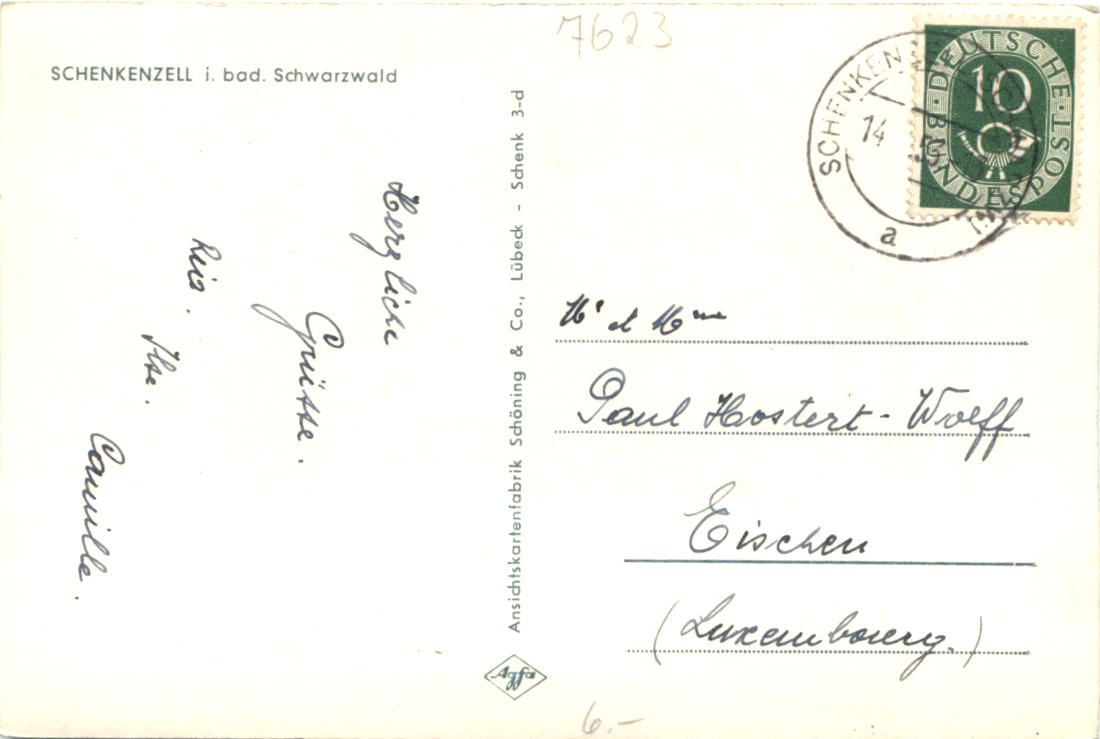 SCHENKENZELL i. bad. Schwarzwald
7623
Herzliche
Grüsse.
Ria.
Ilse.
Camille.
Ansichtskartenfabrik Schöning & Co., Lübeck - Schenk 3-d
Agfa
6.-
SCHENKENZELL
14
a
DEUTSCHE BUNDESPOST
10
Mr et Mme
Paul Hostert-Wolff
Eischen
(Luxembourg.)